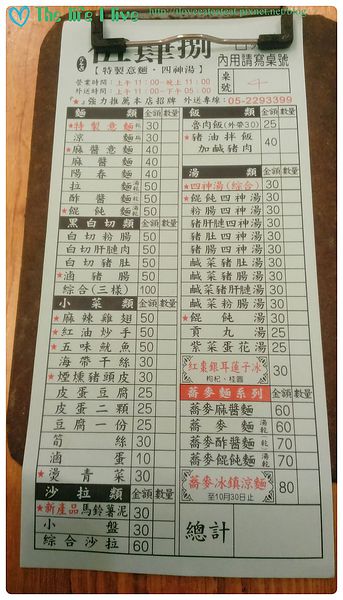 The life I live
伍肆捌
【特製意麵·四神湯】
內用請寫桌號
桌號
內用時間:上午11:00─晚上11:00
外送時間:上午11:00─下午05:00
★強力推薦本店招牌 外送專線:05-2293399
麵類 金額 數量
★特製意麵 30
涼麵 30
★麻醬意麵 40
麻醬麵 40
陽春麵 40
拉麵 50
酢醬麵 50
★餛飩麵 50
黑白切類 金額 數量
白切粉腸 50
白切肝腱肉 50
白切豬肚 50
★滷豬腸 50
綜合(三樣) 100
小菜類 金額 數量
★麻辣雞翅 50
★紅油炒手 50
★五味魷魚 50
海帶干絲 30
★煙燻豬頭皮 30
皮蛋豆腐 25
皮蛋二顆 25
豆腐一份 25
筍絲 30
滷蛋 10
★燙青菜 30
沙拉類 金額 數量
★新產品馬鈴薯泥 30
小盤 30
綜合沙拉 60
飯類 金額 數量
魯肉飯(外帶30) 25
★豬油拌飯加鹹豬肉 40
湯類 金額 數量
★四神湯(綜合)
★餛飩四神湯
粉腸四神湯
豬肚四神湯
豬肝腱四神湯
豬肚肝腱湯
鹹菜豬肚湯
鹹菜豬肝腱湯
鹹菜四神湯
鹹菜粉腸湯
★餛飩湯 30
貢丸湯 30
紫菜蛋花湯 25
紅棗銀耳蓮子冰 30
枸杞、桂圓
蕎麥麵系列 金額 數量
蕎麥麻醬麵 60
蕎麥麵 湯乾 60
蕎麥酢醬麵 湯乾 70
蕎麥餛飩麵 湯乾 70
蕎麥冰鎮涼麵 80
至10月30日止
總計